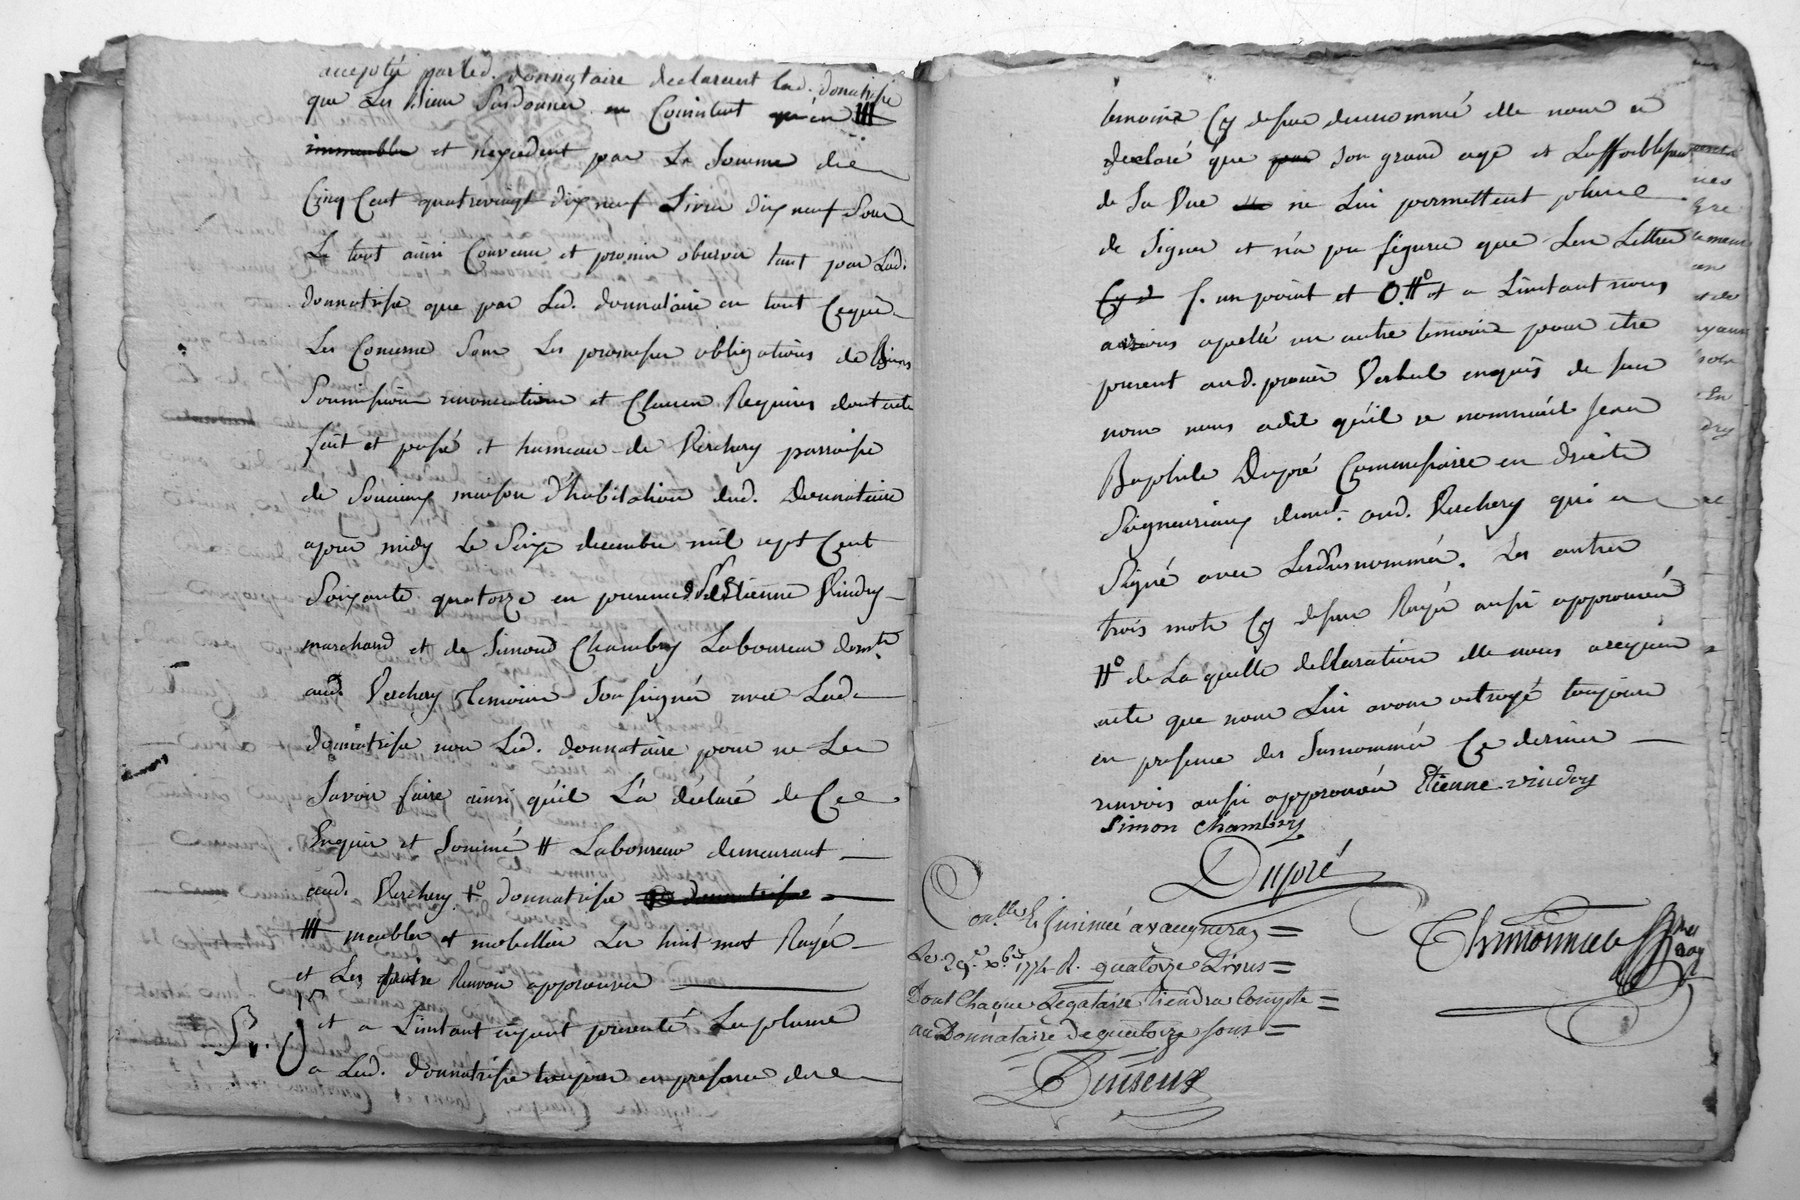 accepté par led. donnataire declarent lad. donatrisse
que Les Biens Susdonnés Consistent qu'en
immeubles et n'exedent pas La Somme de
Cinq Cent quatrevingt dix neuf Livres dix neuf Sous
Le tout ainsi Convenu et promis observer tant par Lad.
donnatrisse que par Led. donnataire en tout Cequi
Les Concerne Sous Les promesses obligations de Biens
Soumissions renonciations et Clauses Requises dont acte
fait et passé et hameau de Verchery parroisse
de Soucieux maison d'habitation dud. Donnataire
après midy Le Seize decembre mil sept Cent
Soixante quatorze en presence de Sr Etienne Vindry
marchand et de Simond Chambry Laboureur demt
aud. Verchery temoins Soussignés avec Lad.
donnatrisse non Led. donnataire pour ne Le
Savoir faire ainsi qu'il L'a déclaré de Ce
Enquis et Sommé # Laboureur demeurant
aud. Verchery #o donnatrisse
### meubles et mobelliers Les huit mot Rayés
et Les quatre Renvois approuvés
et a Linstant ayant présenté La plume
a Lad. donnatrisse toujours en présence des
temoins Cy dessus denommés elle nous a
declaré que pour Son grand age et Laffoiblissement
de Sa Vue ne Lui permettent plus
de Signer et n'a pu figurer que Les Lettres
f. un point et O.#o et a Linstant nous
avons apellé un autre temoin pour etre
present aud. present Verbal enquis de Son
nom nous a dit qu'il se nommait Jean
Baptiste Dupré Commissaire en droits
Seigneuriaux demt. aud. Verchery qui a
Signé avec Lesdusnommés. Les autres
trois mots Cy dessus Rayés aussi approuvés
#o de Laquelle declaration elle nous a requis
acte que nous Lui avons octroyé toujours
en presence des Susnommés Ce dernier
renvois aussi approuvés Etienne vindry
Simon Chambry
Dupré
Conlle & Insinué a vaugneray =
Le 29e xbre 1774 R. quatorze Livres =
Dont Chaque Legataire tiendra Compte =
au Donnataire de quatorze sous =